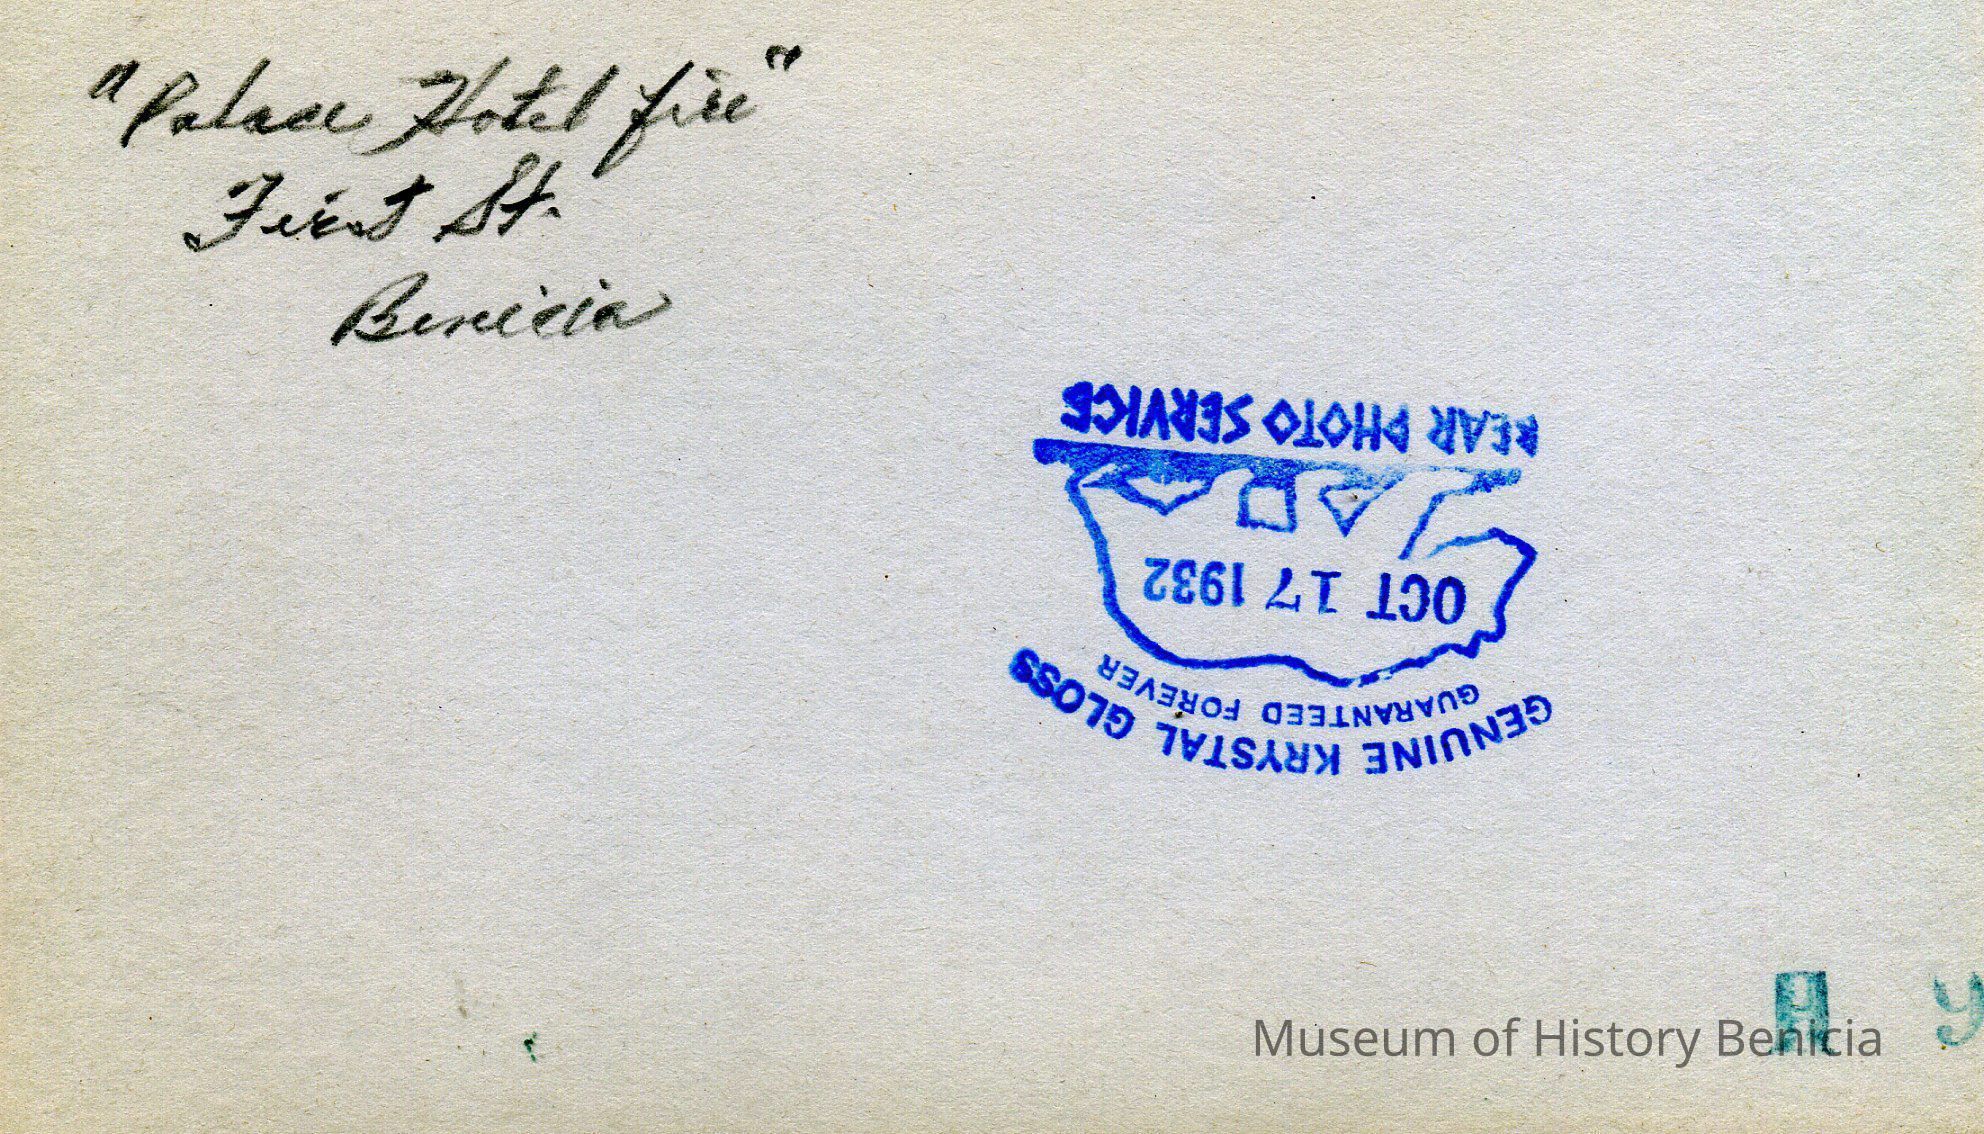 "Palace Hotel fire"
First St.
Benicia
GENUINE KRYSTAL GLOSS
GUARANTEED FOREVER
OCT 17 1932
BEAR PHOTO SERVICE
Museum of History Benicia